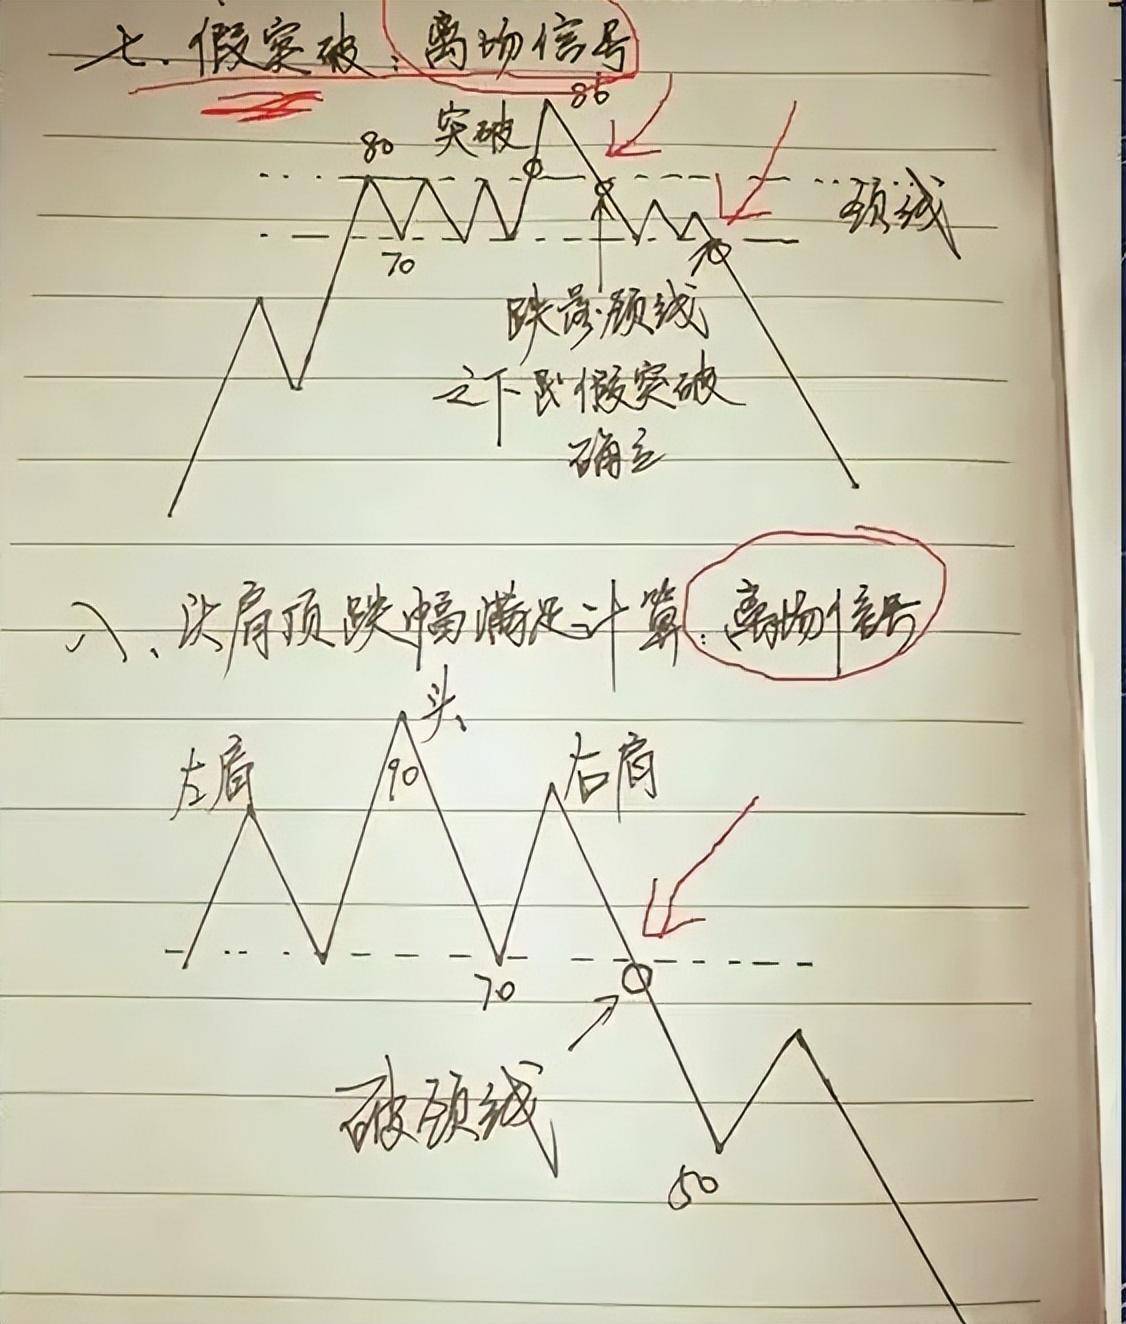 七、假突破：离场信号
86
80
突破
颈线
70
70
跌落颈线
之下即假突破
确立
八、头肩顶跌幅满足计算：离场信号
头
左肩
90
右肩
70
破颈线
50